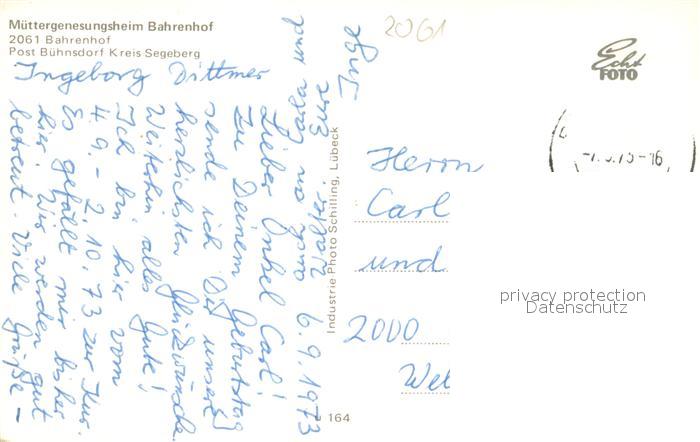 Müttergenesungsheim Bahrenhof
2061 Bahrenhof
Post Bühnsdorf Kreis Segeberg
2061
Echt
FOTO
Ingeborg Dittmer
6.9.1973
Lieber Onkel Carl!
Zu Deinem Geburtstag
sende ich Dir unsere
herzlichsten Glückwünsche.
Weiterhin alles Gute!
Ich bin hier vom
4.9. - 2.10.73 zur Kur.
Es gefällt mir bisher
hier. Wir werden gut
betreut. Viele Grüße -
auch an Gerda und
Eure
Inge
Industrie-Photo Schilling, Lübeck
164
Herrn
Carl
und
2000
Wel
-16
privacy protection
Datenschutz